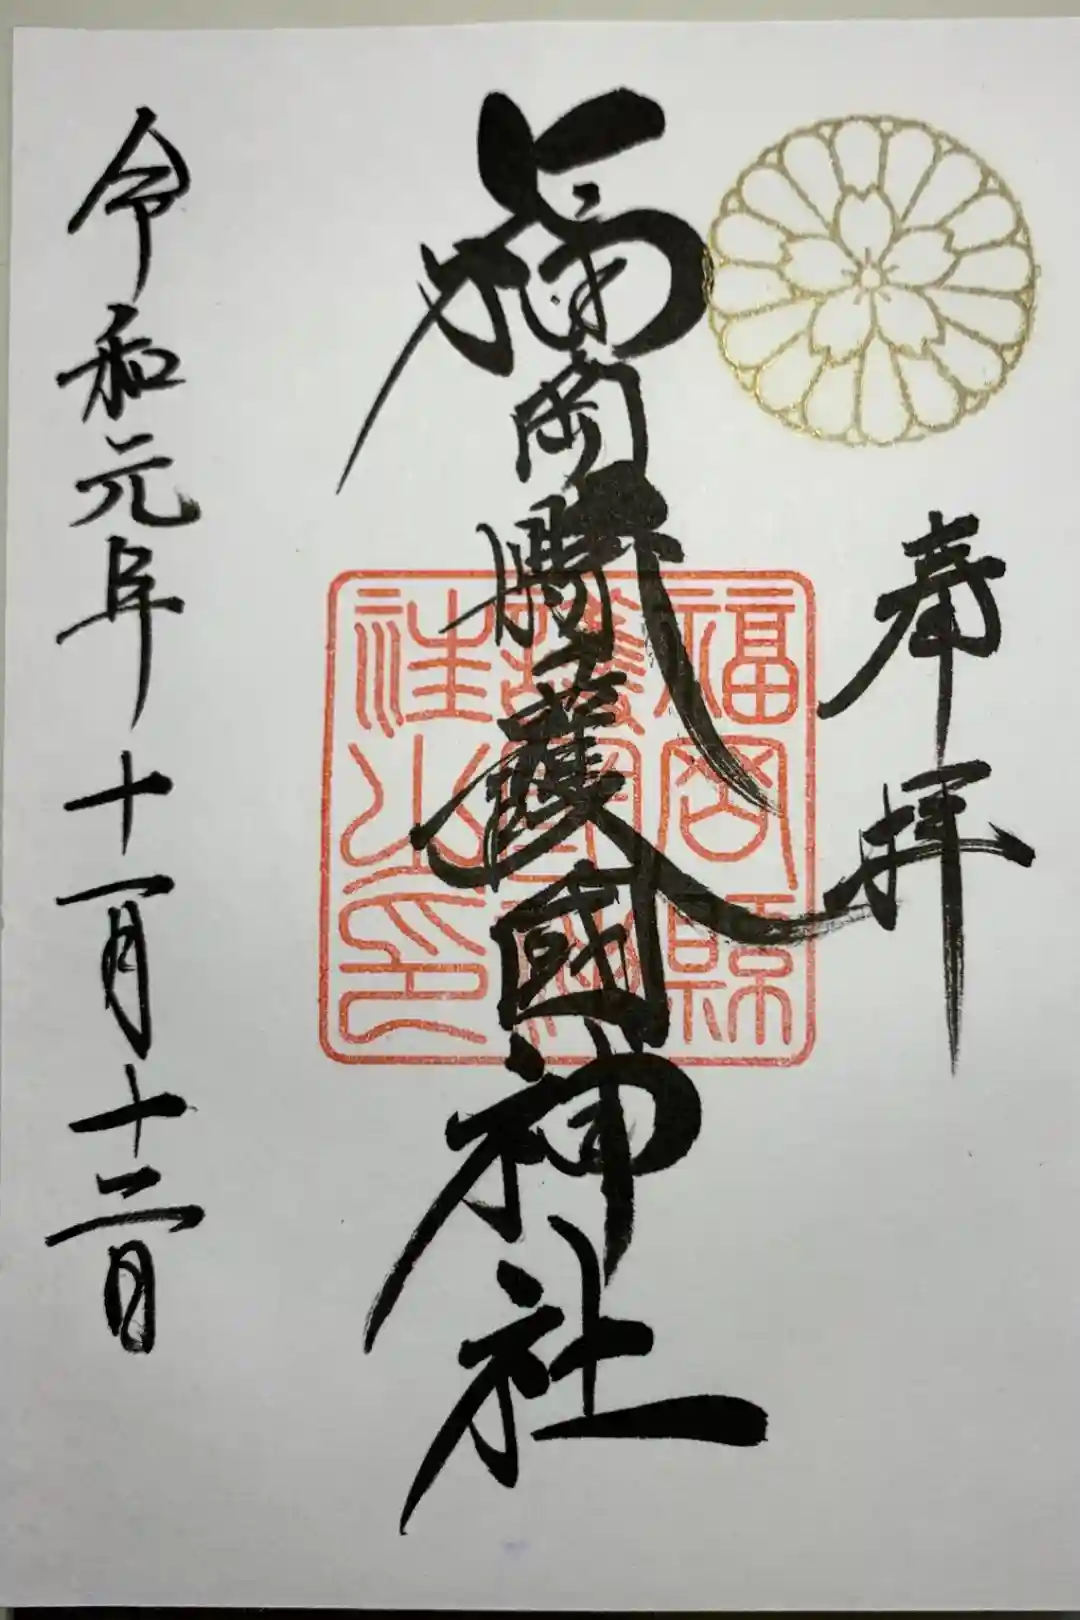 奉拝
福岡縣護國神社
福岡縣
護國神
社之印
令和元年十一月十二日